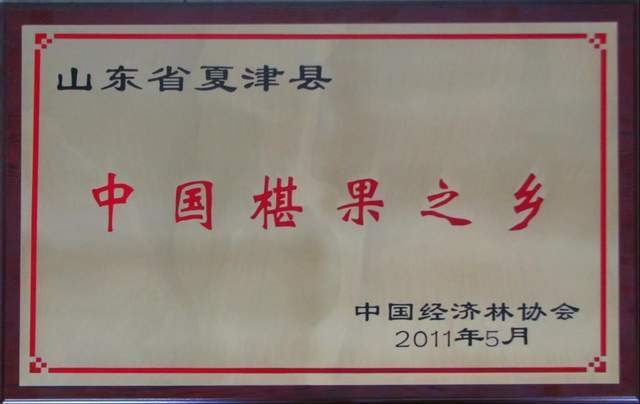 山东省夏津县
中国椹果之乡
中国经济林协会
2011年5月